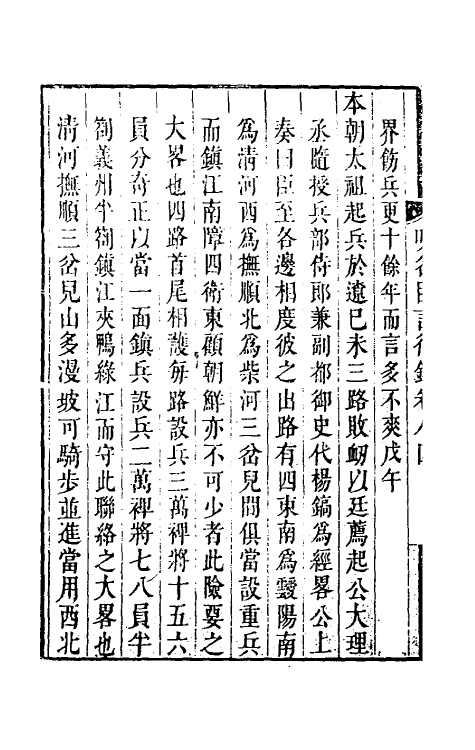 界飭兵更十餘年而言多不爽戊午
本朝太祖起兵於遼己未三路敗衂以廷薦起公大理
丞隨授兵部侍郎兼副都御史代楊鎬為經畧公上
奏曰臣至各邊相度彼之出路有四東南為靉陽南
為清河西為撫順北為柴河三岔兒間俱當設重兵
而鎮江南障四衛東顧朝鮮亦不可少者此險要之
大畧也四路首尾相護每路設兵三萬裨將十五六
員分奇正以當一面鎮兵設兵二萬裨將七八員半
衛義州半衛鎮江夾鴨綠江而守此聯絡之大畧也
清河撫順三岔兒山多漫坡可騎步並進當用西北